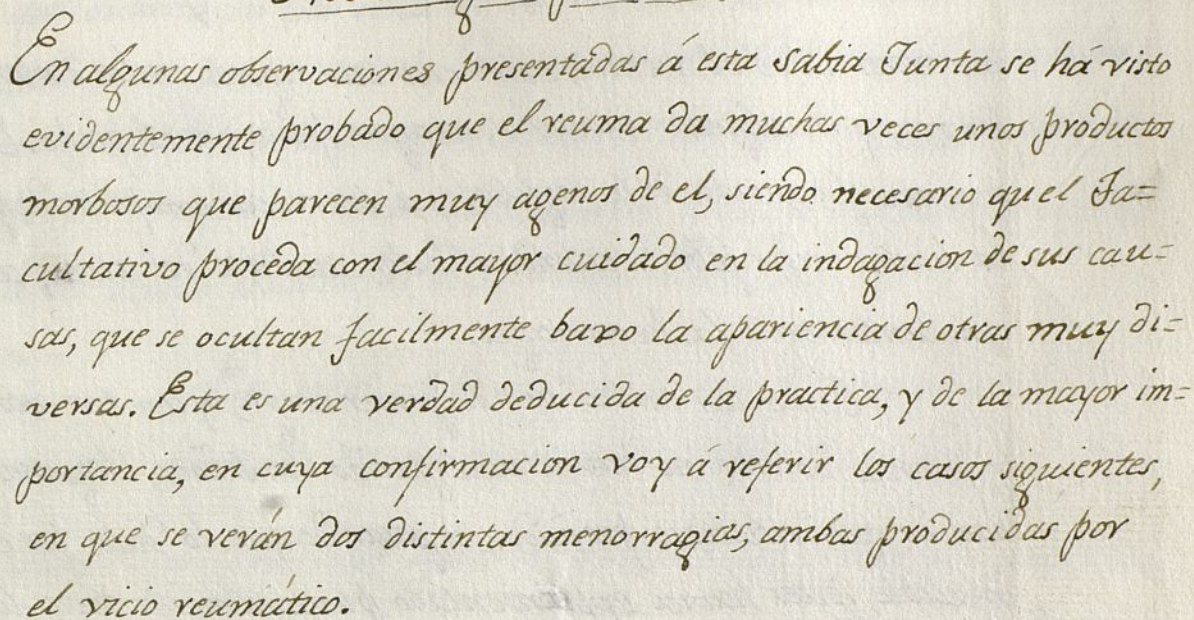 En algunas observaciones presentadas á esta Sabia Junta se há visto
evidentemente probado que el reuma da muchas veces unos productos
morbosos que parecen muy agenos de el, siendo necesario qu el Fa=
cultativo proceda con el mayor cuidado en la indagacion de sus cau=
sas, que se ocultan facilmente baxo la apariencia de otras muy di=
versas. Esta es una verdad deducida de la practica, y de la mayor im=
portancia, en cuya confirmacion voy á referir los casos siguientes,
en que se verán dos distintas menorragias, ambas producidas por
el vicio reumático.